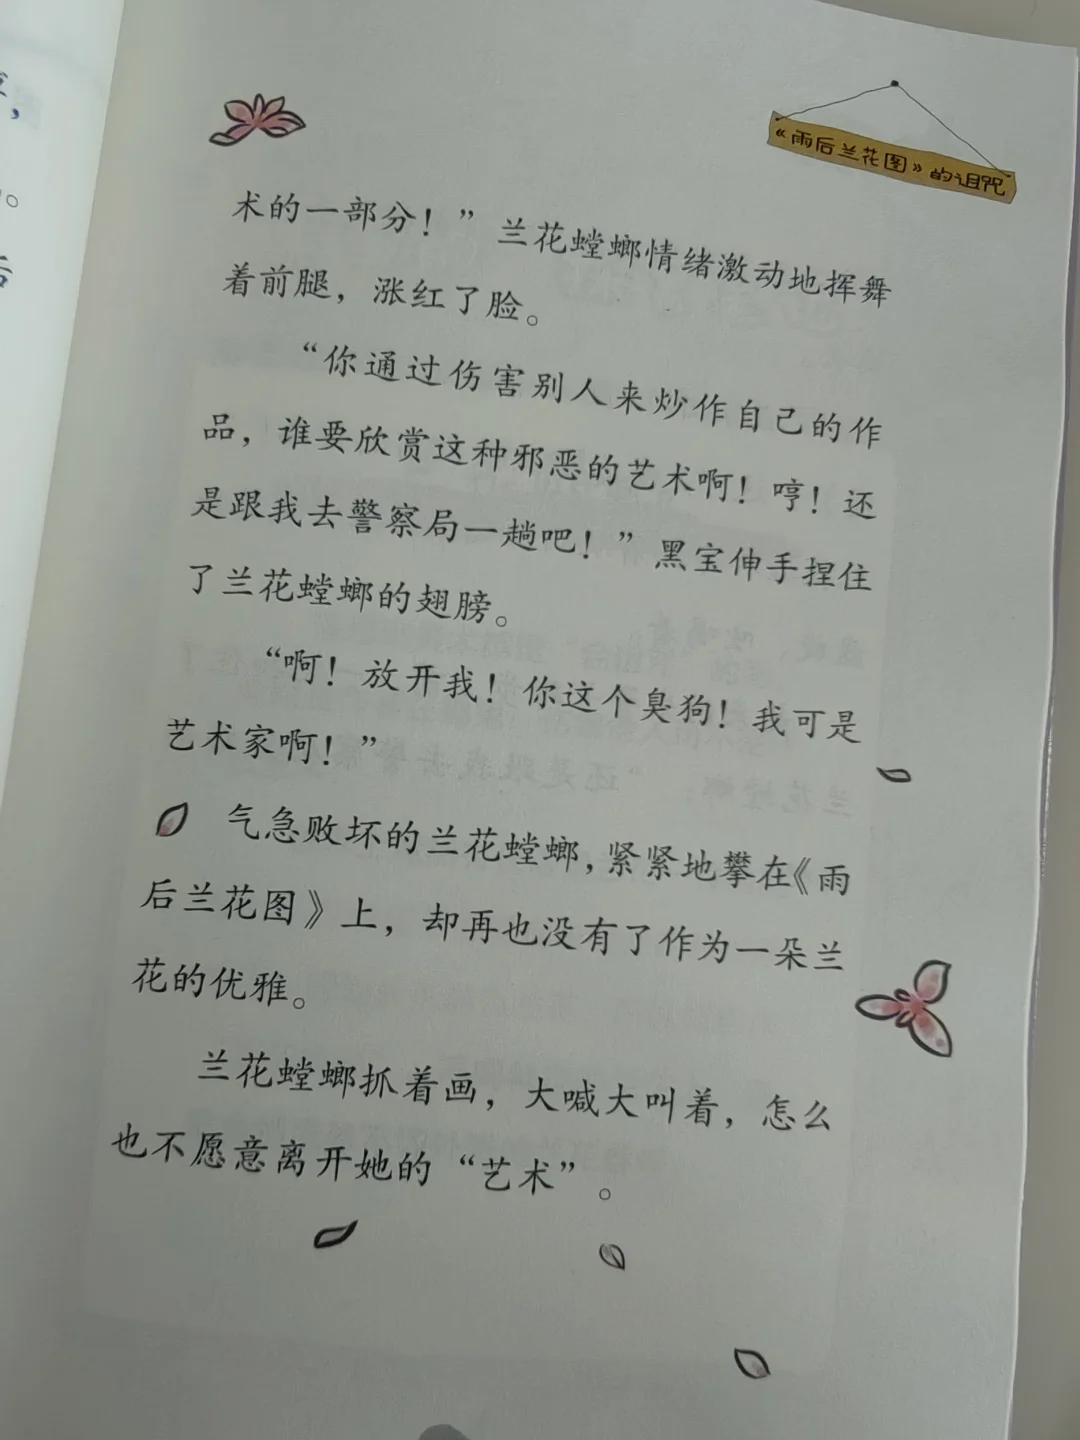 《雨后兰花图》的诅咒
术的一部分！”兰花螳螂情绪激动地挥舞
着前腿，涨红了脸。
“你通过伤害别人来炒作自己的作
品，谁要欣赏这种邪恶的艺术啊！哼！还
是跟我去警察局一趟吧！”黑宝伸手捏住
了兰花螳螂的翅膀。
“啊！放开我！你这个臭狗！我可是
艺术家啊！”
气急败坏的兰花螳螂，紧紧地攀在《雨
后兰花图》上，却再也没有了作为一朵兰
花的优雅。
兰花螳螂抓着画，大喊大叫着，怎么
也不愿意离开她的“艺术”。